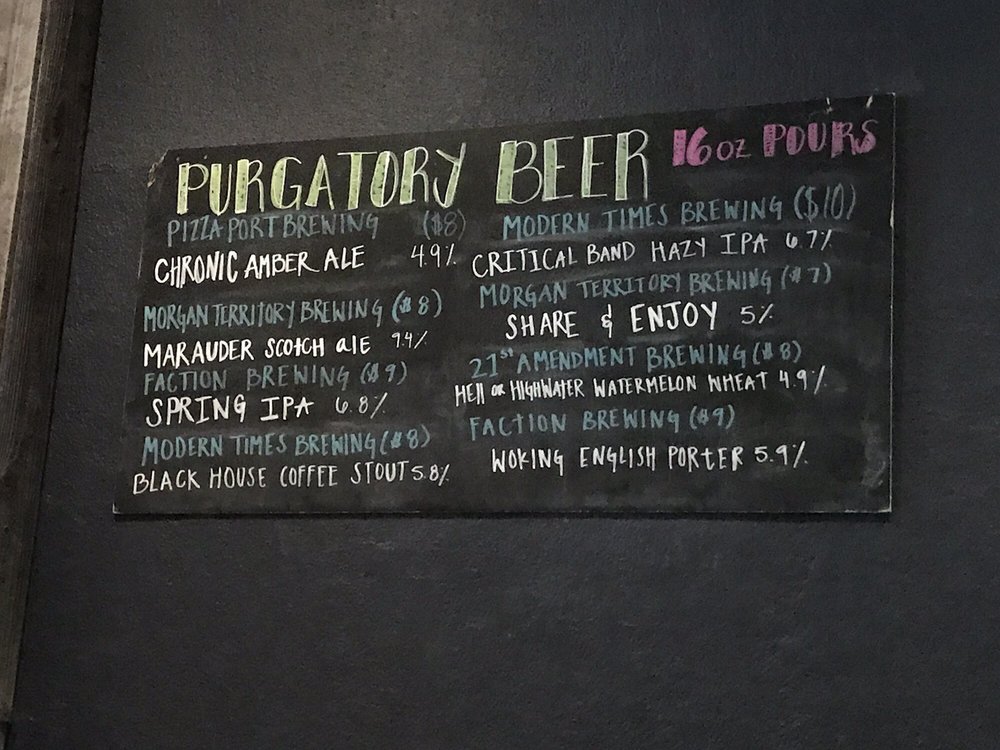 PURGATORY BEER 16 oz POURS
PIZZA PORT BREWING ($8)
CHRONIC AMBER ALE 4.9%
MORGAN TERRITORY BREWING ($8)
MARAUDER SCOTCH ALE 9.4%
FACTION BREWING ($9)
SPRING IPA 6.8%
MODERN TIMES BREWING ($8)
BLACK HOUSE COFFEE STOUT 5.8%
MODERN TIMES BREWING ($10)
CRITICAL BAND HAZY IPA 6.7%
MORGAN TERRITORY BREWING ($7)
SHARE & ENJOY 5%
21st AMENDMENT BREWING ($8)
HEll OR HIGHWATER WATERMELON WHEAT 4.9%
FACTION BREWING ($9)
WOKING ENGLISH PORTER 5.9%